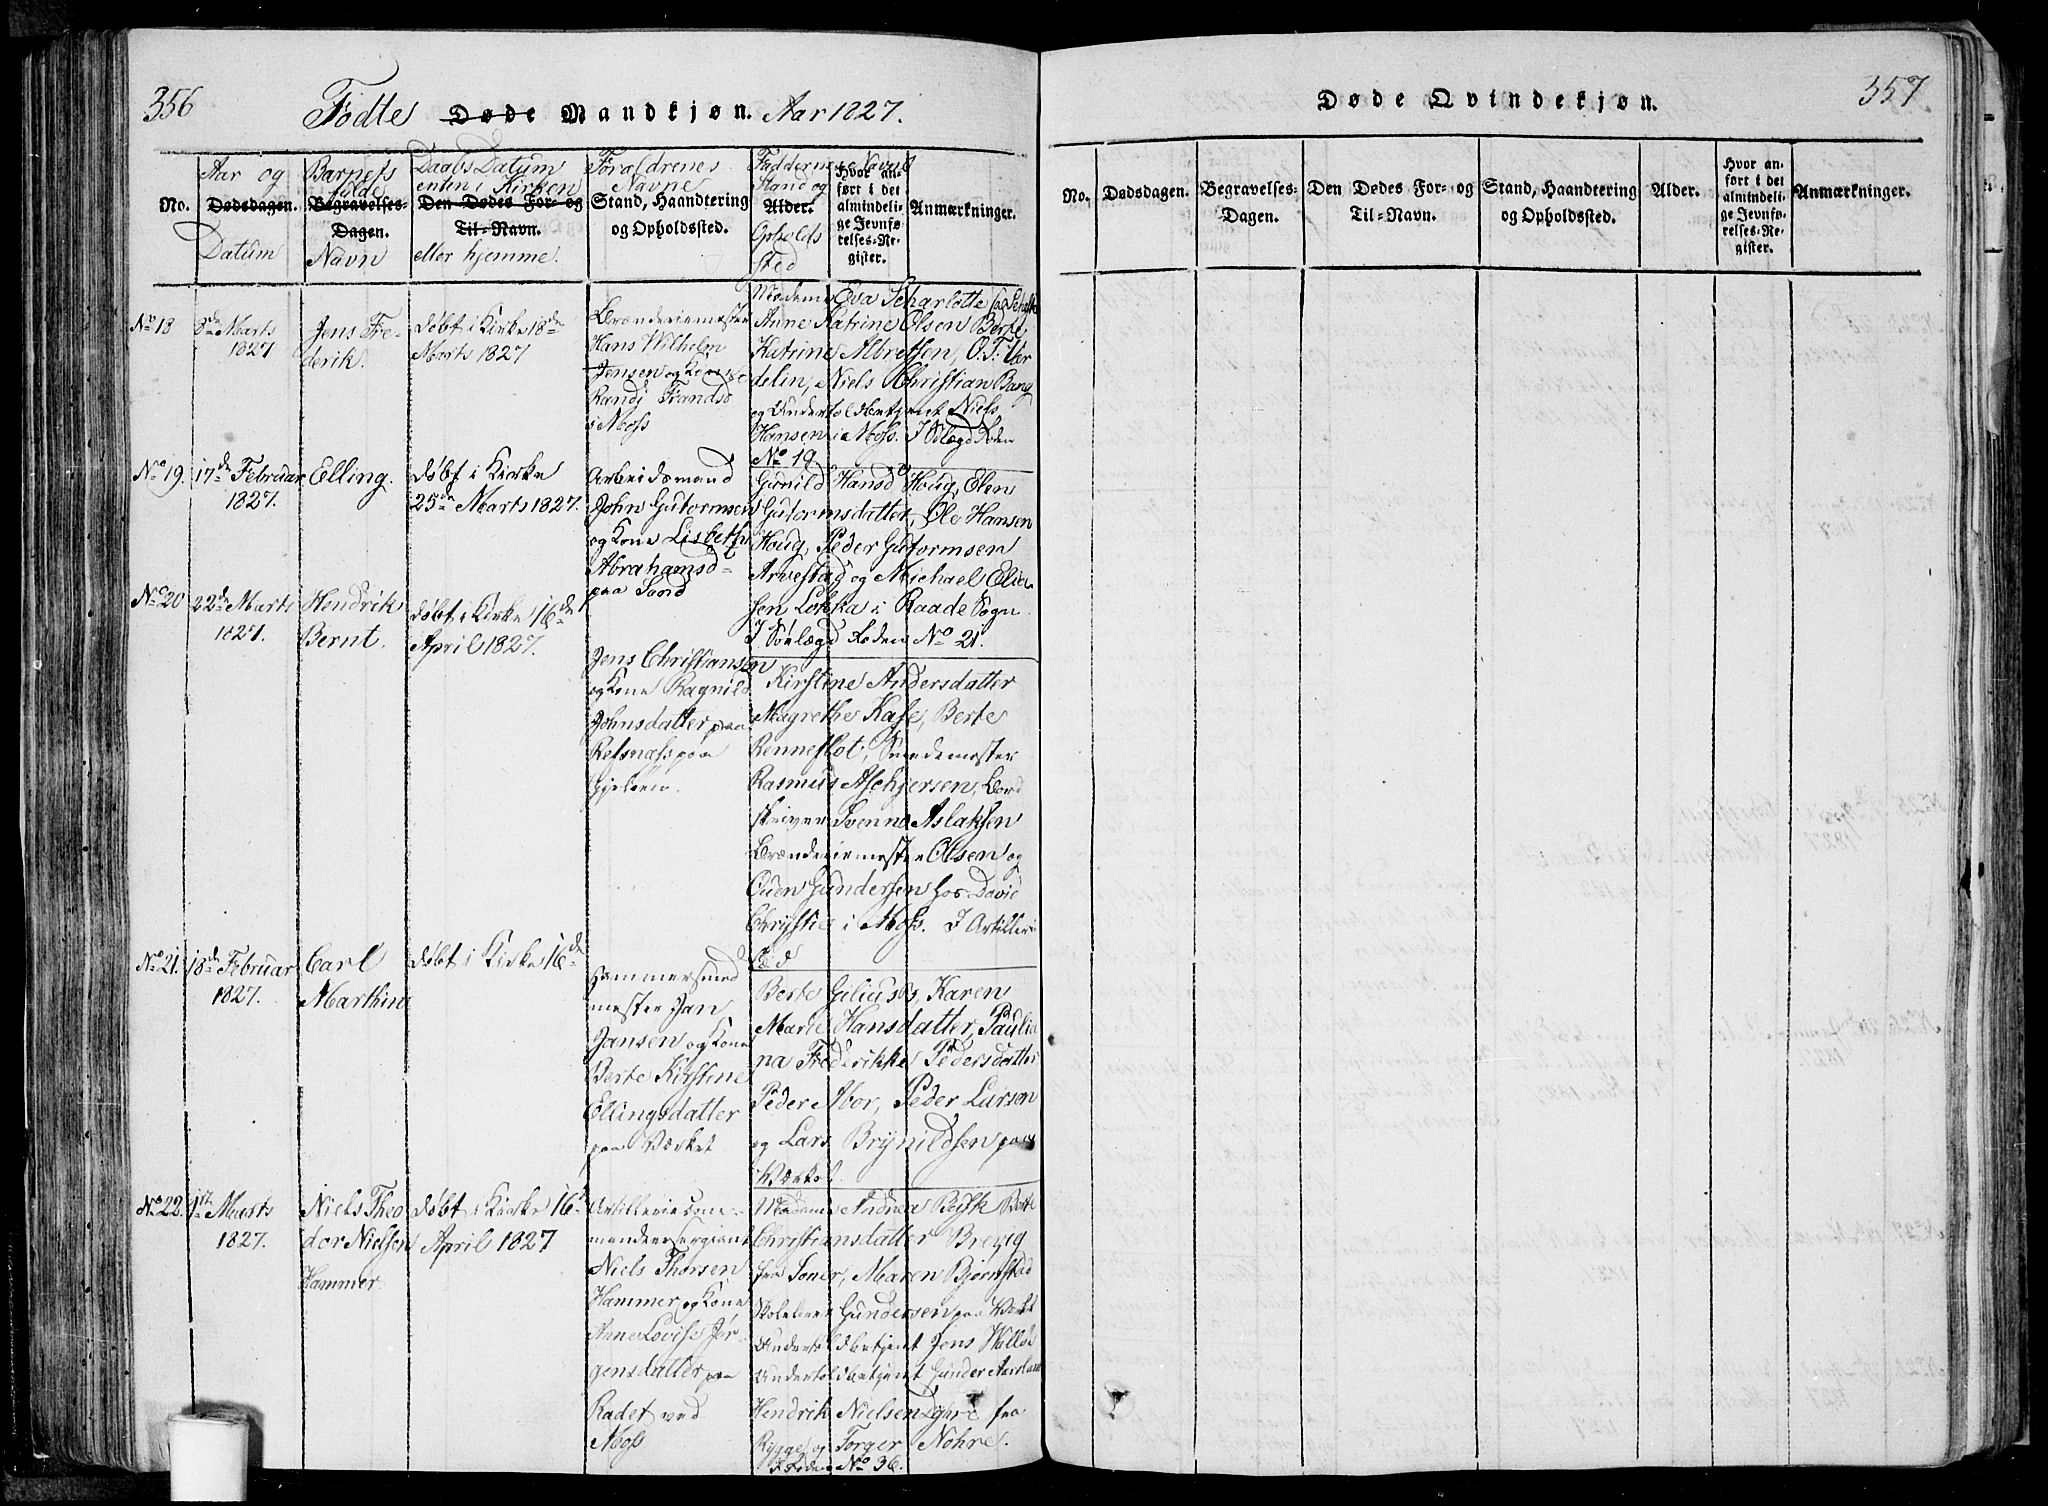 356
Fødte Døde Mandkjøn. Aar 1827.
No.
Aar og
Dødsdagen.
Datum
Barnets
fulde
Begravelses-
Dagen.
Navn
Daabs Datum
enten i Kirken
Den Dødes For- og
Til-Navn.
eller hjemme.
Forældrenes
Navne
Stand, Haandtering
og Opholdssted.
Faddernes Navne
Stand og
Alder.
Opholds
sted
Hvor an-
ført i det
almindeli-
ge Jevnfø-
relses-Re-
gister.
Anmærkninger.
No 18
8de Marts
1827
Jens Fre-
derik.
døbt i Kirke 18de
Marts 1827
Brænderiemester
Hans Wilhelm
Jensen og Kone
Randi Frandsd
i Moss
Madame Eva Scharlotte
Anne Katrine Olsen Berte
Katrine Albretsen, O. T. Vær
delin, Niels Christian Bang
og Undertoldbetjent Niels
Hansen i Moss. I Søelægd Roden
No 19
No 19.
17de Februar
1827.
Elling.
døbt i Kirke
25de Marts 1827.
Arbeidsmand
John Gutormsen
og Kone Lisbeth
Abrahamsd
paa Sand
Gunild Hansd Houg, Elen
Gutormsdatter, Ole Hansen
Houg, Peder Gutormsen
Arvestad og Michael Elia-
sen Løkka i Raade Sogn
I Søelægd Roden No 21.
No 20
22de Marts
1827.
Hendrik
Bernt.
døbt i Kirke 16de
April 1827.
Jens Christiansen
og Kone Ragnild
Johnsdatter paa
Refsnæss paa
Gjeløen.
Kirstine Andersdatter
Magrethe Kase, Berte
Renneflot, Smedemester
Rasmus Aschjersen, Bord
skriver Svenno Aslaksen
Brænderiemester Olsen og
Ouen Gundersen hos David
Christie i Moss. I Artilleri
Lægd
No 21.
18de Februar
1827.
Carl
Marthin
døbt i Kirke 16de
Hammersmed
mester Jan
Jansen og Kone
Berte Kirstine
Ellingsdatter
paa Værket
Berte Giliuss, Karen
Marie Hansdatter, Pauli
na Frederikke Pedersdatter
Peder Abor, Peder Larsen
og Lars Brynildsen paa
Værket.
No 22.
1ste Marts
1827.
Niels Theo
dor Nielsen
Hammer.
døbt i Kirke 16de
April 1827
Artilleriecom-
mandeersergiant
Niels Thorsen
Hammer og Kone
Anne Lovise Jør-
gensdatter paa
Radet ved
Moss
Madame Andrea Beisk Berte
Christiansdatter Brevig
fra Soner, Maren Bjørnstad
Skolelærer Gundersen paa Værket
Undertoldbetjent Jens Welløe
Undertoldbetjent Gunder Aarslan
Hendrik Nielsen Dyre fra
Rygge og Torger Nøhre.
I Roden No 36.
Døde Qvindekjøn.
357
No.
Dødsdagen.
Begravelses-
Dagen.
Den Dødes For- og
Til-Navn.
Stand, Haandtering
og Opholdssted.
Alder.
Hvor an-
ført i det
almindeli-
ge Jevnfø-
relses-Re-
gister.
Anmærkninger.